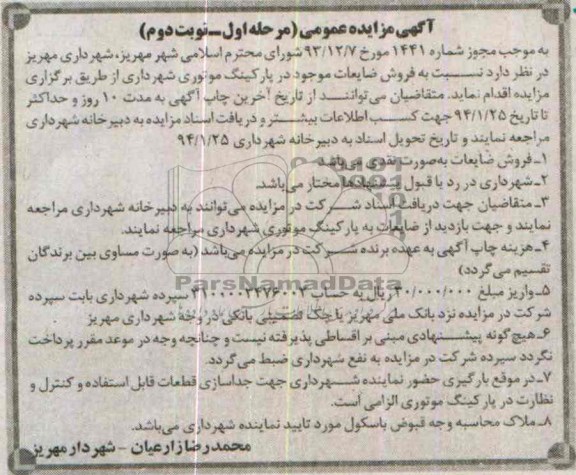 آگهی مزایده عمومی (مرحله اول ــ نوبت دوم)
به موجب مجوز شماره ۱۴۴۱ مورخ ۹۳/۱۲/۷ شورای محترم اسلامی شهر مهریز، شهرداری مهریز
در نظر دارد نسبت به فروش ضایعات موجود در پارکینگ موتوری شهرداری از طریق برگزاری
مزایده اقدام نماید. متقاضیان می‌توانند از تاریخ آخرین چاپ آگهی به مدت ۱۰ روز و حداکثر
تا تاریخ ۹۴/۱/۲۵ جهت کسب اطلاعات بیشتر و دریافت اسناد مزایده به دبیرخانه شهرداری
مراجعه نمایند و تاریخ تحویل اسناد به دبیرخانه شهرداری ۹۴/۱/۲۵
۱ـ فروش ضایعات به‌صورت نقدی می‌باشد
۲ـ شهرداری در رد یا قبول پیشنهادها مختار می‌باشد.
۳ـ متقاضیان جهت دریافت اسناد شرکت در مزایده می‌توانند به دبیرخانه شهرداری مراجعه
نمایند و جهت بازدید از ضایعات به پارکینگ موتوری شهرداری مراجعه نمایند.
۴ـ هزینه چاپ آگهی به عهده برنده شرکت در مزایده می‌باشد (به صورت مساوی بین برندگان
تقسیم می‌گردد)
ParsNamadData
۵ـ واریز مبلغ ۲۰/۰۰۰/۰۰۰ ریال به حساب سپرده شهرداری بابت سپرده
شرکت در مزایده نزد بانک ملی مهریز یا چک تضمینی بانکی در وجه شهرداری مهریز
۶ـ هیچ‌گونه پیشنهادی مبنی بر اقساطی پذیرفته نیست و چنانچه وجه در موعد مقرر پرداخت
نگردد سپرده شرکت در مزایده به نفع شهرداری ضبط می‌گردد.
۷ـ در موقع بارگیری حضور نماینده شهرداری جهت جداسازی قطعات قابل استفاده و کنترل و
نظارت در پارکینگ موتوری الزامی است.
۸ـ ملاک محاسبه وجه قبوض باسکول مورد تایید نماینده شهرداری می‌باشد.
محمدرضا زارعیان - شهردار مهریز